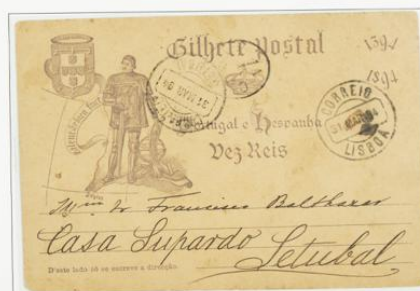 Bilhete Postal
Portugal e Hespanha
Dez Reis
CORREIO
31 MAR 94
LISBOA
Francisco Balthazar
Casa Supardo
Setubal
D'este lado só se escreve a direcção.